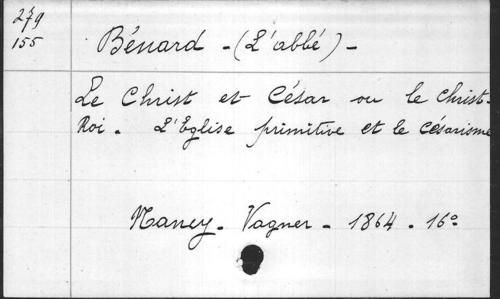 279
155
Bénard - (L'abbé) -
Le Christ et César ou le Christ-
Roi. L'Eglise primitive et le césarisme
Nancy. Vagner - 1864 - 16°